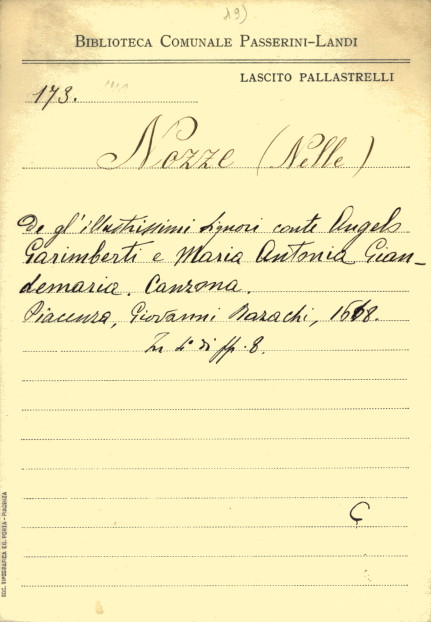 19)
BIBLIOTECA COMUNALE PASSERINI-LANDI
LASCITO PALLASTRELLI
173.
Nozze (Nelle)
De gl'illustrissimi Signori conte Angelo
Garimberti e Maria Antonia Gian-
demaria. Canzona.
Piacenza, Giovanni Bazachi, 1668.
In 4° di ff. 8.
Ç
SOC. TIPOGRAFICA ED. PORTA - PIACENZA